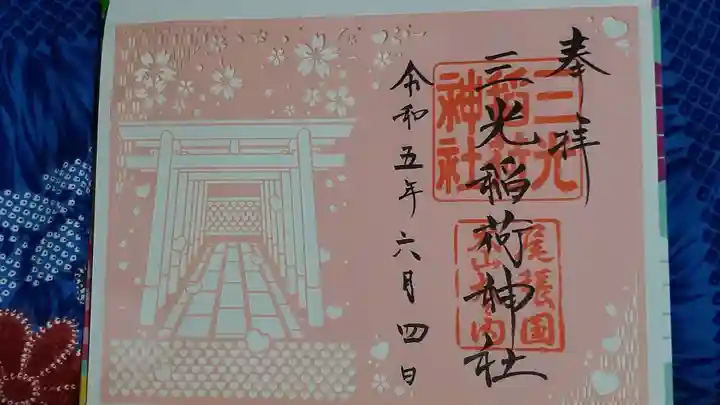 奉拝
三光稲荷神社
三光
稲荷
神社
尾張国
犬山城内
令和五年六月四日